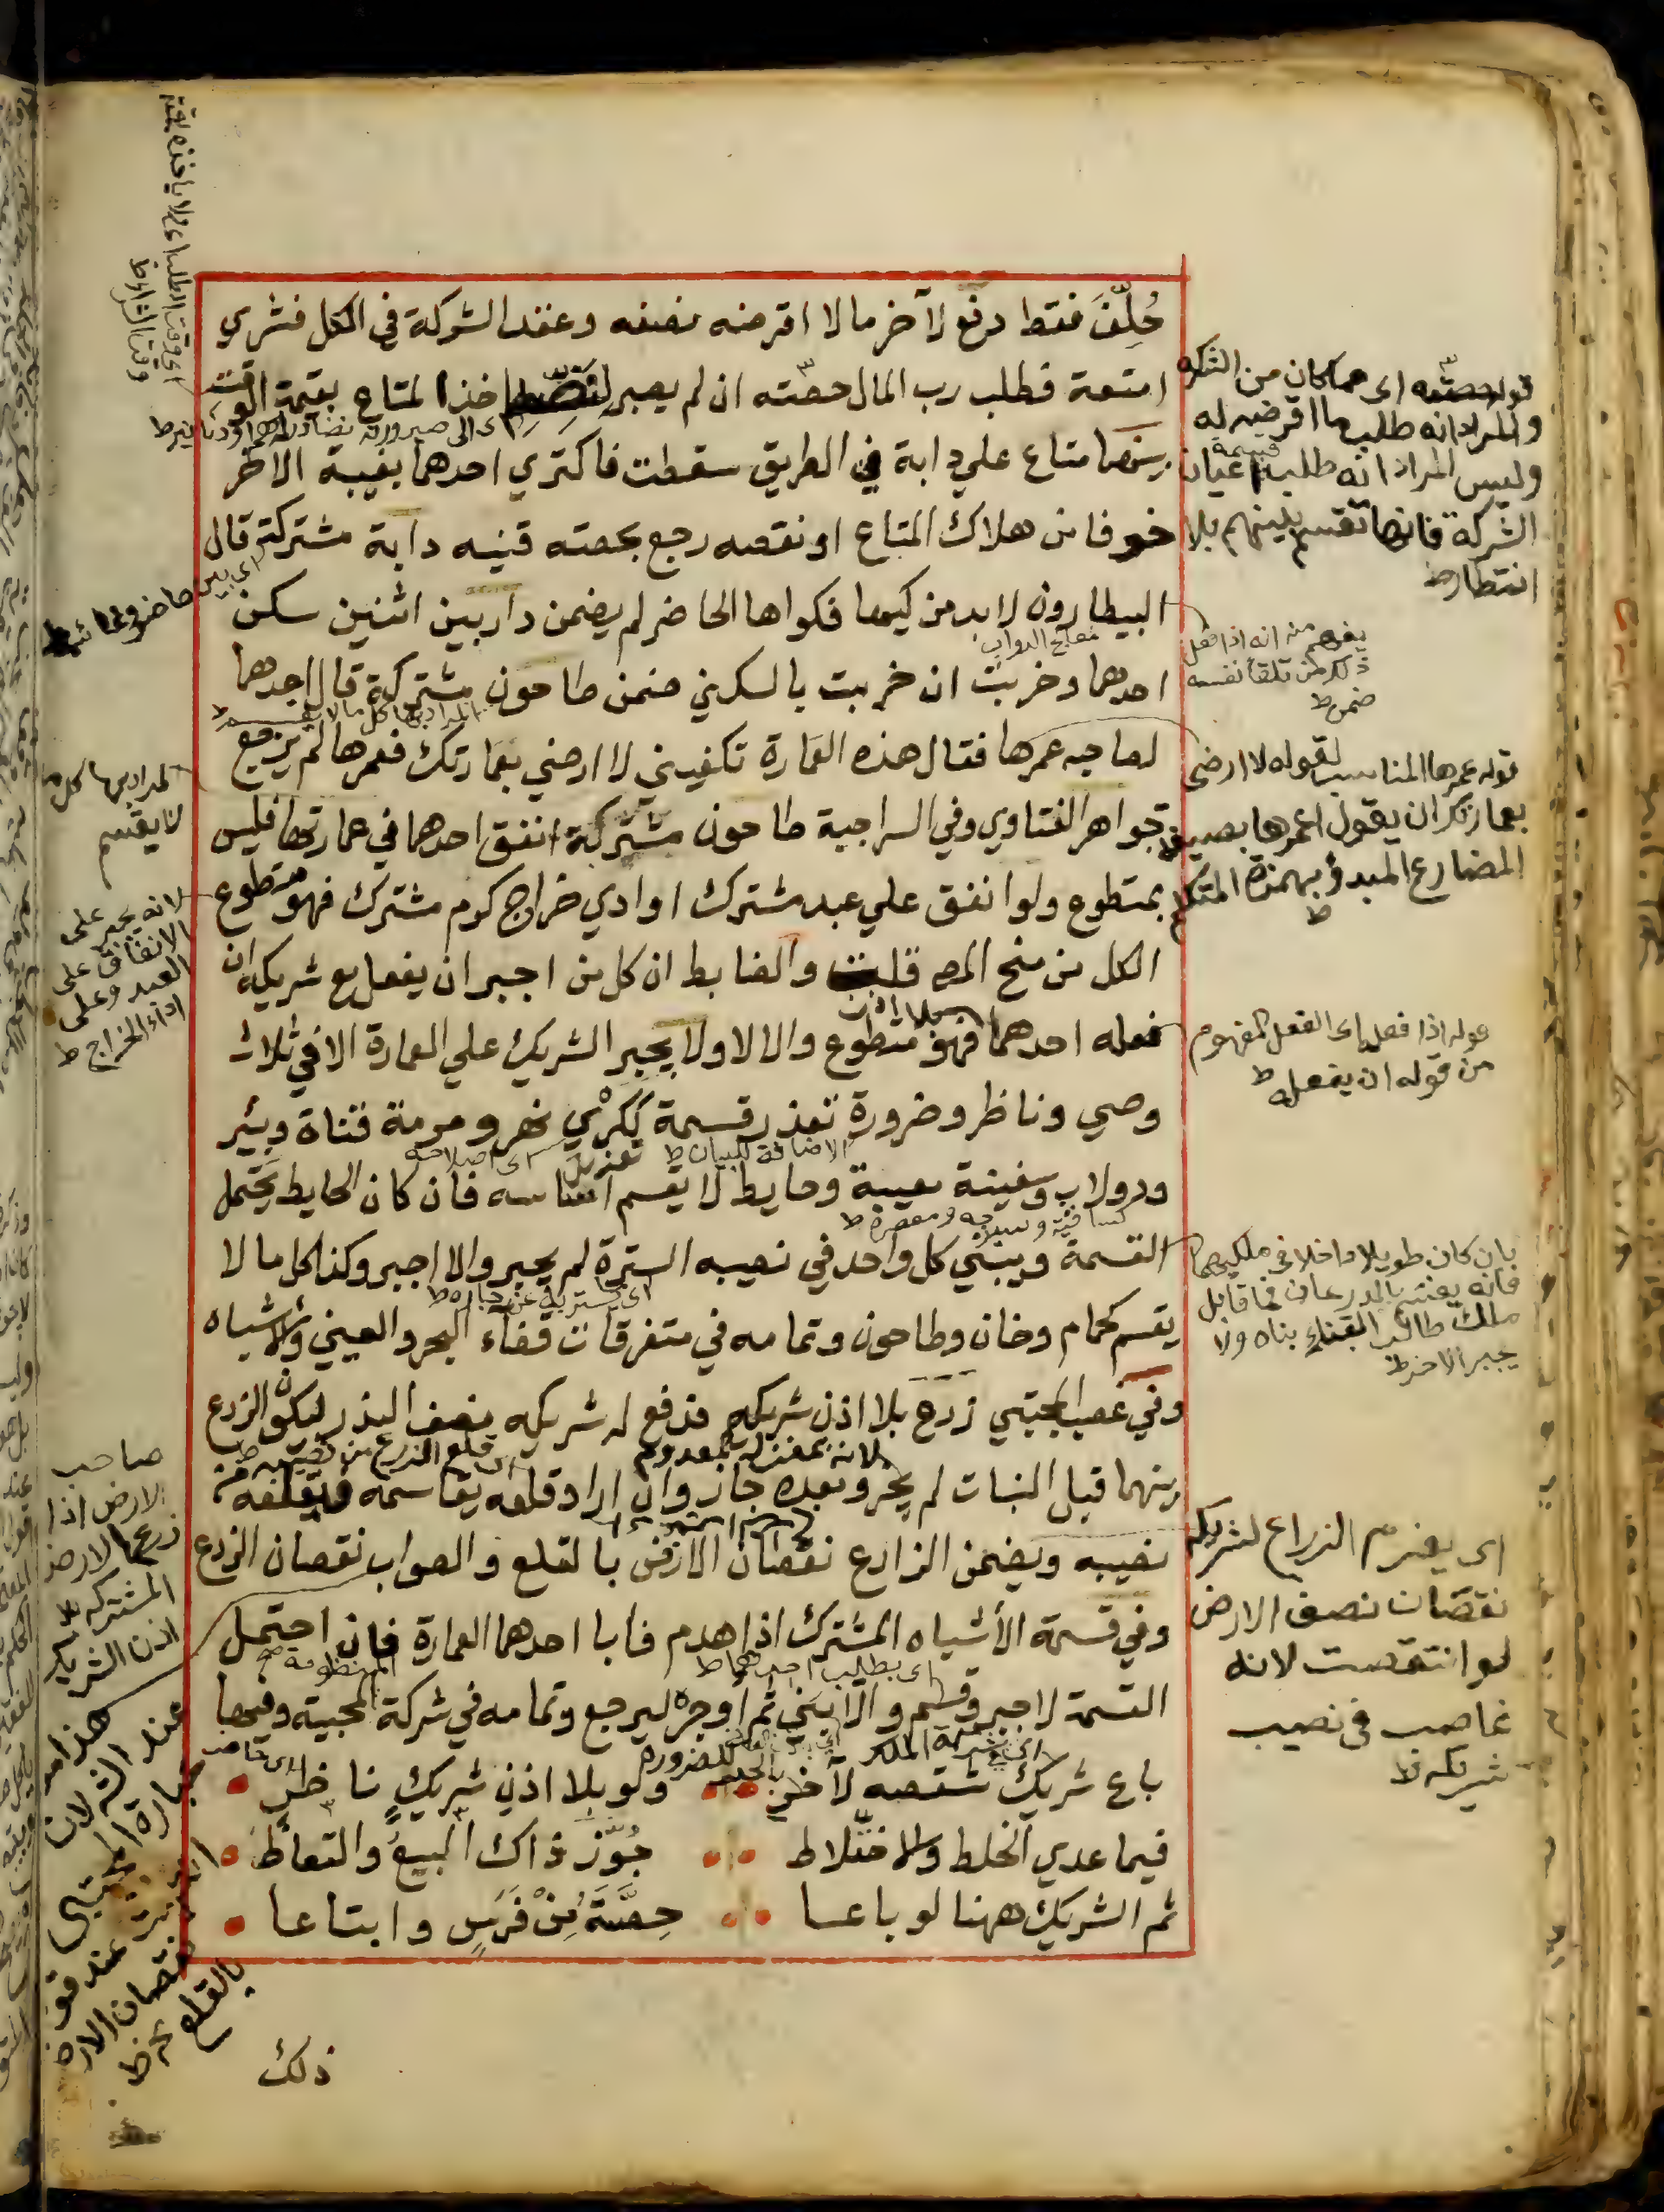 حُلِّفَ فقط دفع لآخر مالا اقرضه نصفه وعقد الشركة في الكل فشري
امتعة فطلب رب المال حصّته ان لم يصبر لنضّه اخذ المتاع بقيمة الوقت
بينهما متاع علي دابة في الطريق سقطت فاكتري احدهما بغيبة الاخر
خوفا من هلاك المتاع او نقصه رجع بحصته قنيه دابة مشتركة قال
البيطارون لابد من كيها فكواها الحاضر لم يضمن دار بين اثنين سكن
احدهما وخربت ان خربت بالسكني ضمن طاحون مشتركة قال احدهما
لصاحبه عمرها فقال هذه العمارة تكفيني لا ارضي بعمارتك فعمرها لم يرجع
جواهر الفتاوي وفي السراجية طاحون مشتركة انفق احدهما في عمارتها فليس
بمتطوع ولو انفق علي عبد مشترك او ادي خراج كرم مشترك فهو متطوع
الكل من منح المص قلت والضابط ان كل من اجبر ان يفعل مع شريكه ان
فعله احدهما بلا اذن فهو متطوع والا لا ولا يجبر الشريك علي العمارة الا في ثلاث
وصي وناظر وضرورة تعذر قسمة ككرْي نهر ومرمة قناة وبئر
ودولاب وسفينة معيبة وحايط لا يقسم اساسه فان كان الحايط يحتمل
القسمة ويبني كل واحد في نصيبه السترة لم يجبر والا اجبر وكذا كل ما لا
يقسم كحمام وخان وطاحون وتمامه في متفرقات قضاء البحر والعيني والاشباه
وفي غصب المجتبي زرع بلا اذن شريكه فدفع له شريكه نصف البذر ليكون الزرع
بينهما قبل النبات لم يجز وبعده جاز وان اراد قلعه يقاسمه فيقلعه من
نصيبه ويضمن الزارع نقصان الارض بالقلع والصواب نقصان الزرع
وفي قسمة الأشباه المشترك اذا هدم فابا احدهما العمارة فان احتمل
القسمة لا جبر وقسم والا بني ثم اوجره ليرجع وتمامه في شركة المحبية وفيها
باع شريك شقصه لآخر ولو بلا اذن شريكٍ ناظر
فيما عدي الخلط والاختلاط جُوّز ذاك البيعُ والتعاطْ
ثم الشريك ههنا لو باعا حِصَّةَ مِنْ فَرَسٍ وابتاعا
ذلك
قوله حصته اى مما كان من الشركة
والمراد انه طلب ما اقرضه له
وليس المراد انه طلب قسمة اعيان
الشركة فانها تقسم بينهم بلا
انتظار ط
يفهم منه انه اذا فعل
ذلك من تلقا نفسه
ضمن ط
قوله عمرها المناسب لقوله لا ارضى
بعمارتك ان يقول اعمرها بصيغة
المضارع المبدؤ بهمزة المتكلم
ط
قوله اذا فعل اى الفعل المفهوم
من قوله ان يفعله ط
بان كان طويلا داخلا فى ملكيهما
فانه يقسم بالذرعان فما قابل
ملك طالب البناء بناه ولا
يجبر الاخر ط
اى يغرم الزراع لشريكه
نقصان نصف الارض
لو انتقصت لانه
غاصب فى نصيب
شريكه ط
اى بين حاضر وغائب ط
المراد بها كل ما
لا يقسم
لانه يجبر على
الانفاق على
العبد وعلى
اداء الخراج ط
صاحب
الارض اذا
زرع الارض
المشتركه بغير
اذن الشريك
معالج الدواب
المراد بها كل ما لا يقسم ط
الاضافة للبيان ط
اى اصلاحه
لانه بمنزلة المعدوم
اى قلع الزرع من نصيبه ط
اى بطلب احدهما ط
المنظومه
للضروره
نقصان الارض
بالقلع